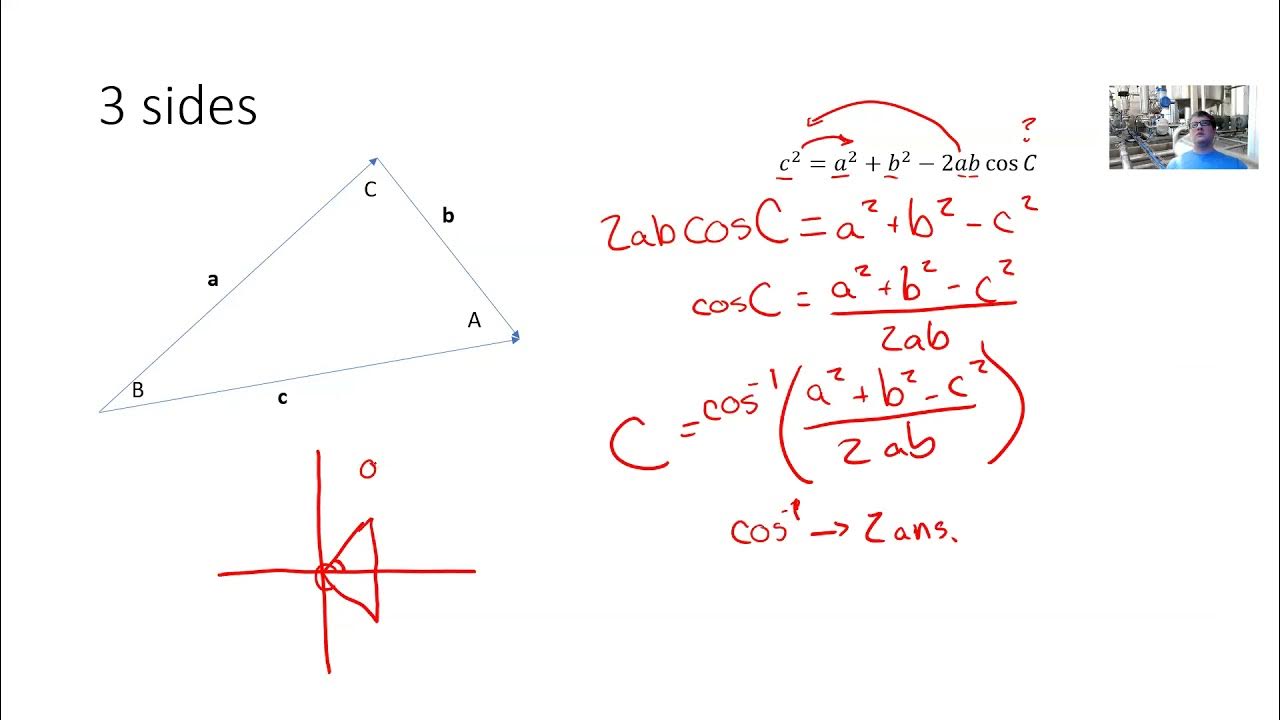 3 sides
?
c² = a² + b² − 2ab cos C
C
b
a
A
B
c
2abcosC = a² + b² - c²
cosC = a² + b² - c² / 2ab
C = cos⁻¹(a² + b² - c² / 2ab)
cos⁻¹ → 2 ans.
0